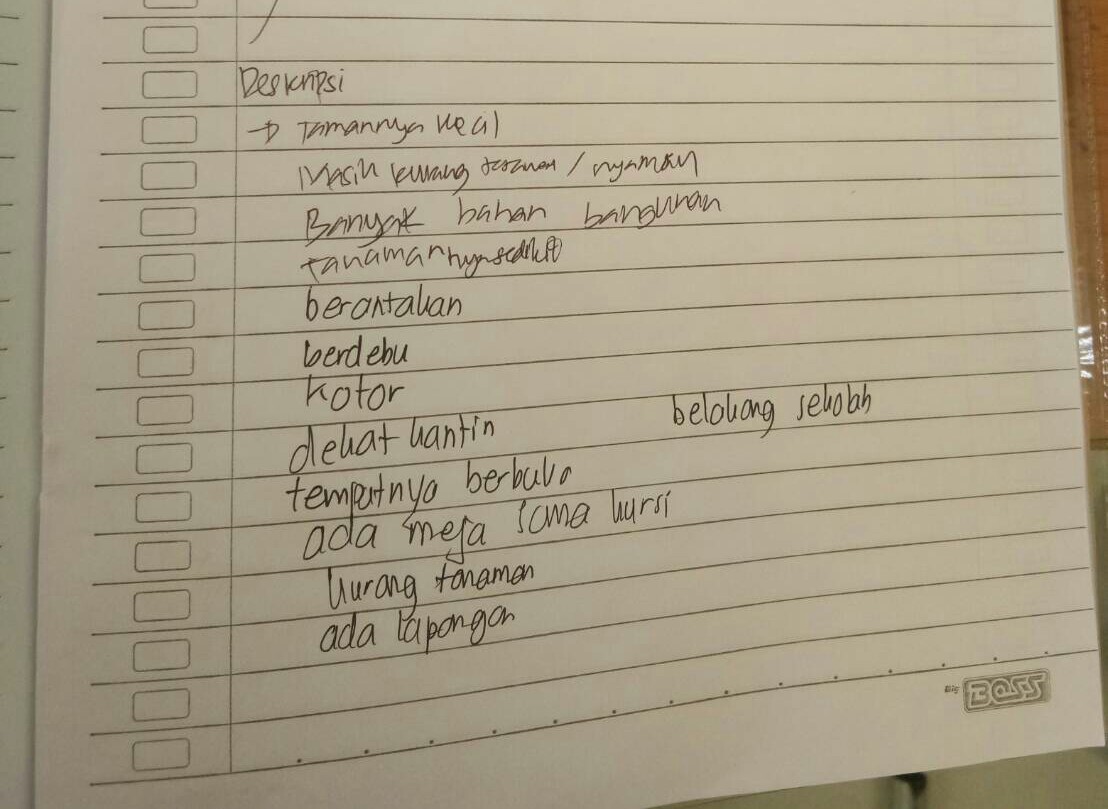 Deskripsi
→ Tamannya kecil
Masih kurang / nyaman
Banyak bahan bangunan
tanamannya sedikit
berantakan
berdebu
kotor
dekat kantin belakang sekolah
tempatnya berbuka
ada meja sama kursi
kurang tanaman
ada lapangan
Big BOSS